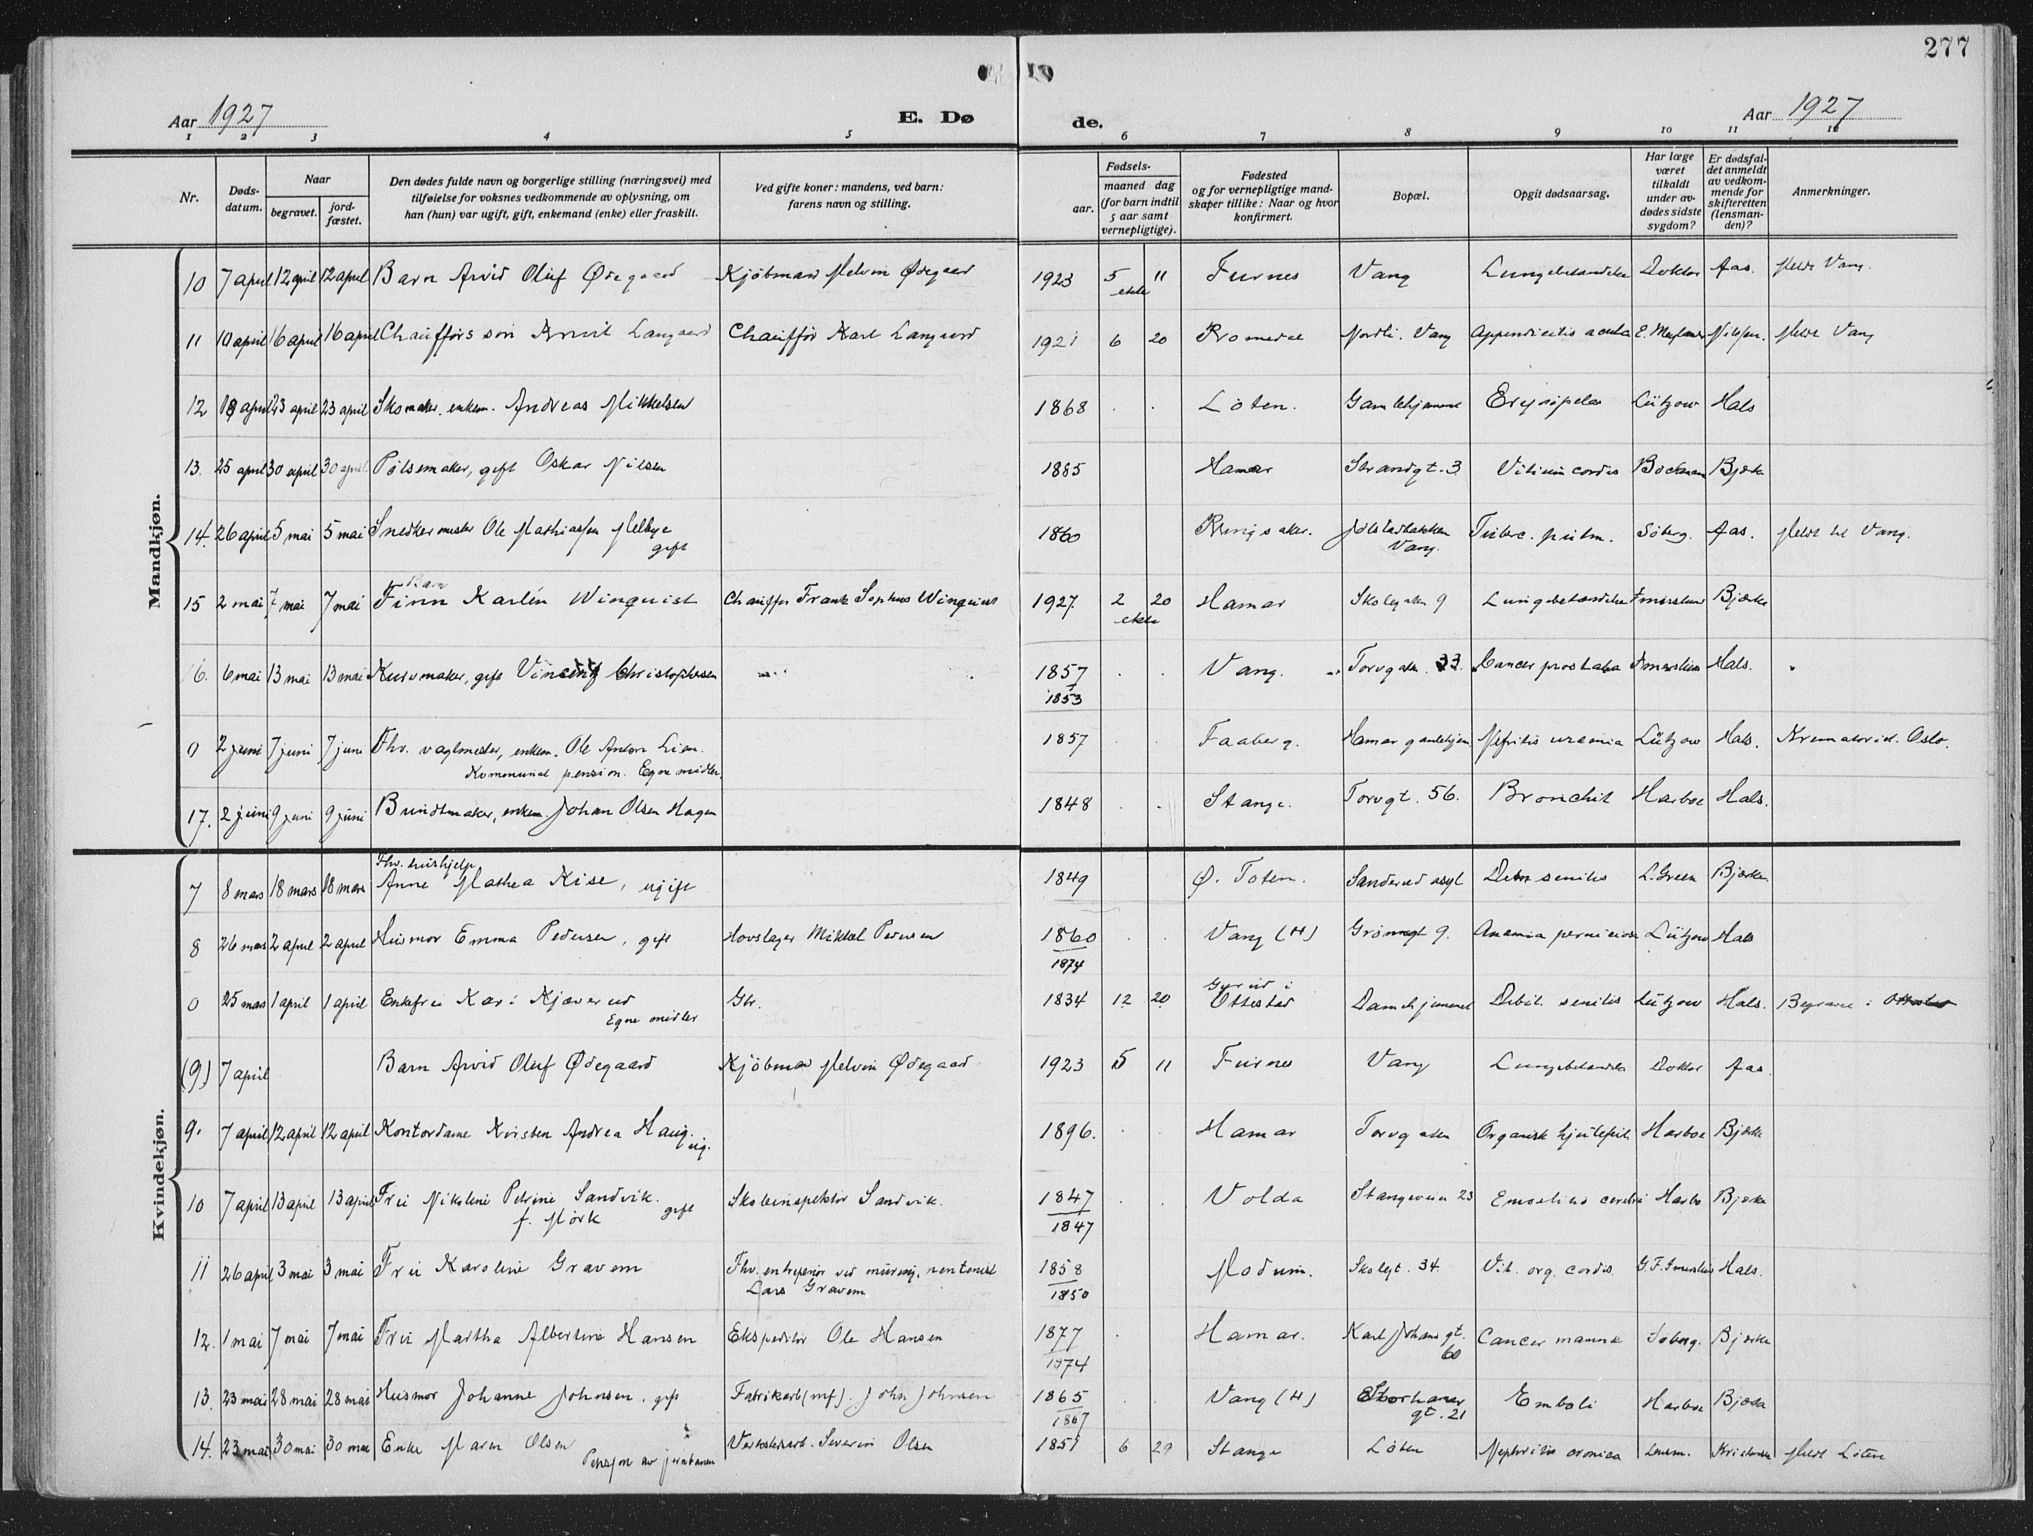 277
Aar 1927 E. Dø de. Aar 1927
1 2 3 4 5 6 7 8 9 10 11 12
Nr.
Døds-
datum.
Naar
begravet.
jord-
fæstet.
Den dødes fulde navn og borgerlige stilling (næringsvei) med
tilføielse for voksnes vedkommende av oplysning, om
han (hun) var ugift, gift, enkemand (enke) eller fraskilt.
Ved gifte koner: mandens, ved barn:
farens navn og stilling.
Fødsels-
aar.
maaned dag
(for barn indtil
5 aar samt
vernepligtige).
Fødested
og for vernepligtige mand-
skaper tillike: Naar og hvor
konfirmert.
Bopæl.
Opgit dødsaarsag.
Har læge
været
tilkaldt
under av-
dødes sidste
sygdom?
Er dødsfal-
det anmeldt
av vedkom-
mende for
skifteretten
(lensman-
den)?
Anmerkninger.
Mandkjøn.
10 7 april 12 april 12 april Barn Arvid Oluf Ødegaard Kjøbmand Melvin Ødegaard 1923 5 11 Furnes Vang Lungebetændelse Doktor Aas. Meldt Vang.
ekte
11 10 april 16 april 16 april Chaufførs søn Langaard Chauffør Karl Langaard 1921 6 20 Romedal Nordli. Vang Appendicitis acuta Nilsen. Meldt Vang
12 18 april 23 april 23 april Skomaker. enkem. Andreas Mikkelsen 1868 Løten. Gamlehjemmet Erysipelas Lützow Hals
13. 25 april 30 april 30 april. Pølsemaker, gift Oskar Nilsen 1885 Hamar Strandgt. 3 Vitium cordis Bockman Bjerke
14. 26 april 5 mai 5 mai Snedkermester Ole Mathiassen Melbye 1860 Ringsaker. Jølstadbakken Tuberc. pulm. Søberg. Aas. Meldt til Vang.
gift
Vang.
Barn
15 2 mai 7 mai 7 mai Finn Karlén Winquist Chauffør Frank Sophus Winquist 1927 2 20 Hamar Skolegaten 9 Lungebetændelse Smørslund Bjerke
ekte
16. 6 mai 13 mai 13 mai Kurvmaker, gift Vincent Christophersen 1857 Vang. Torvgaten 33. Cancer prostata Hals.
1853
0 2 juni 7 juni 7 juni Fhv. vagtmester, enkem. Ole Anton Lien. 1857 Faaberg. Hamar gamlehjem Nefritis uræmia Lützow Hals. Krematoriet. Oslo.
Kommunal pension. Egne midler.
17. 2 juni 9 juni 9 juni Bundtmaker, enkem. Johan Olsen Hagen 1848 Stange. Torvgt. 56. Bronchit Harboe Hals.
Kvindekjøn.
Fhv. hushjelp
7 8 mars 18 mars 18 mars Anne Mathea Kise, ugift 1849 Ø. Toten. Sanderud asyl Debit senilis L. Green Bjerke
8 26 mars 2 april 2 april Husmor Emma Pedersen, gift Hovslager Mikkel Pedersen 1860 Vang (H) Grønnegt 9. Anæmia perniciosa Lützow Hals
1874
Gyrud i
0 25 mars 1 april 1 april Enkefru Kari Kjæverud Gbr. 1834 12 20 Ottestad Damehjemmet Debit. senilis Lützow Hals. Begravet i Ottestad
Egne midler
(9) 7 april Barn Arvid Oluf Ødegaard Kjøbmand Melvin Ødegaard 1923 5 11 Furnes Vang Lungebetændelse Doktor Aas.
9. 7 april 12 april 12 april Kontordame Kristen Andrea Haug. 1896. Hamar Torvgaten Organisk hjertefeil Harboe Bjerke
ug.
10 7 april 13 april 13 april Fru Nikoline Petrine Sandvik. Skoleinspektør Sandvik. 1847 Volda Stangeveien 23 Harboe Bjerke
f. Mørk gift
1847
11 26 april 3 mai 3 mai Fru Karoline Gravem Fhv. entreprenør ved murerig, rentenist 1858 Modum. Skolegt. 34. Vit. org. cordis Hals.
Lars Gravem
1850
12. 1 mai 7 mai 7 mai Fru Martha Albertine Hansen Ekspeditør Ole Hansen 1877 Hamar. Karl Johans gt. Cancer mammæ Søberg. Bjerke
60
1874
13. 23 mai 28 mai 28 mai Husmor Johanne Johnsen, gift Fabrikarb (mf). John Johnsen 1865 Vang (H) Storhamar Emboli Harboe Bjerke
gt. 21
1867
14. 23 mai 30 mai 30 mai Enke Maren Olsen Verkstedsarb. Severin Olsen 1851 6 29 Stange Løten Nephritis cronica Meldt Løten
Pensjon av jernbanen